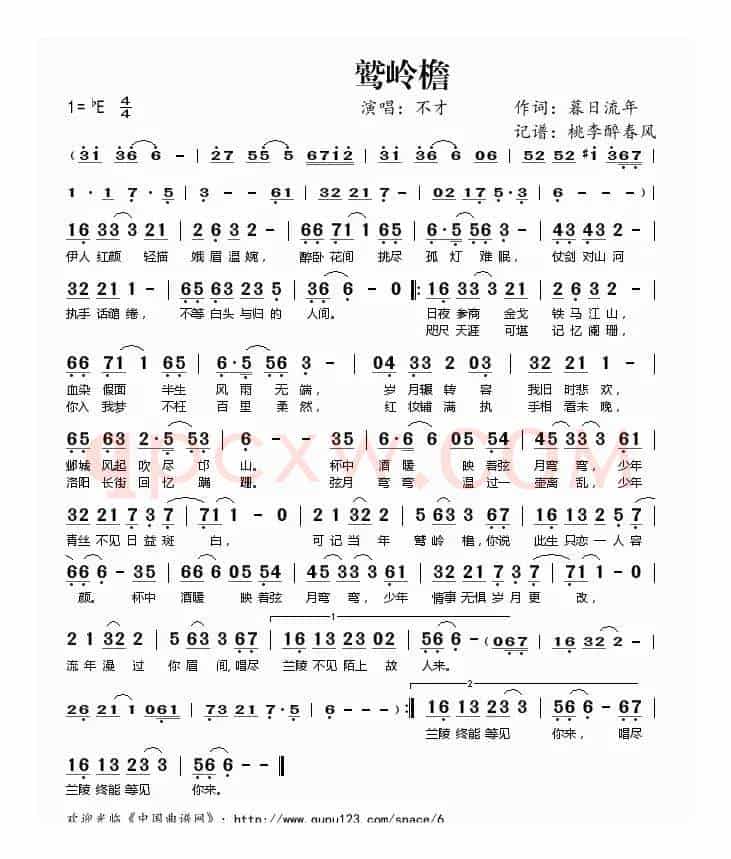 鹫岭檐
1=♭E 4/4 演唱：不才 作词：暮日流年
记谱：桃李醉春风
( 3i 36 6 - | 27 55 5 6712 | 3i 36 6 06 | 52 52 #i 367 |
1 · 1 7 · 5 | 3 - - 61 | 32 21 7 - | 02 17 5 · 3 | 6 - - - )
16 33 3 21 | 2 6 32 - | 66 71 1 65 | 6 · 5 56 3 - | 43 43 32 |
伊人 红颜 轻描 娥眉 温婉， 醉卧 花间 挑尽 孤灯 难眠， 仗剑 对山 河
32 21 1 - | 65 63 23 5 | 36 6 - 0 ‖: 16 33 3 3 | 2 2 32 - |
执手 话缱 绻， 不等 白头 与归 的 人间。 日夜 参商 金戈 铁马 江山，
咫尺 天涯 可堪 记忆 阑珊，
66 71 1 65 | 6 · 5 56 3 - | 03 33 2 03 | 32 21 1 - |
血染 假面 半生 风雨 无端， 岁 月辗 转 容 我旧 时悲 欢，
你入 我梦 不枉 百里 柔然， 红 妆铺 满 执 手相 看未 晚，
65 63 2 · 5 53 | 6 - - 35 | 6 · 6 6 05 54 | 45 33 3 61 |
邺城 风起 吹尽 邙 山。 杯中 酒 暖 映 着弦 月弯 弯， 少年
洛阳 长街 回忆 蹒 跚。 弦月 弯 弯 温 过一 壶离 乱， 少年
32 21 7 3 7 | 71 1 - 0 | 2 1 32 2 | 5 63 3 67 | 16 13 2 57 |
青丝 不见 日益 斑 白， 可 记 当 年 鹫 岭 檐，你说 此生 只恋 一 人容
66 - 35 | 66 6 05 54 | 45 33 3 61 | 32 21 7 3 7 | 71 1 - 0 |
颜。 杯中 酒暖 映 着弦 月弯 弯， 少年 情事 无惧 岁 月 更 改，
1
2 1 32 2 | 5 63 3 67 | 16 13 23 02 | 56 6 - ( 067 | 16 32 2 - |
流 年 漫 过 你 眉 间，唱尽 兰陵 不见 陌上 故 人来。
2
26 21 1 061 | 73 21 7 · 5 | 6 - - - ) :‖ 16 13 23 3 | 56 6 - 67 |
兰陵 终能 等见 你来， 唱尽
16 13 23 3 | 56 6 - - ‖
兰陵 终能 等见 你来。
qpcxw.COM
欢迎光临《中国曲谱网》：http://www.qupu123.com/space/6